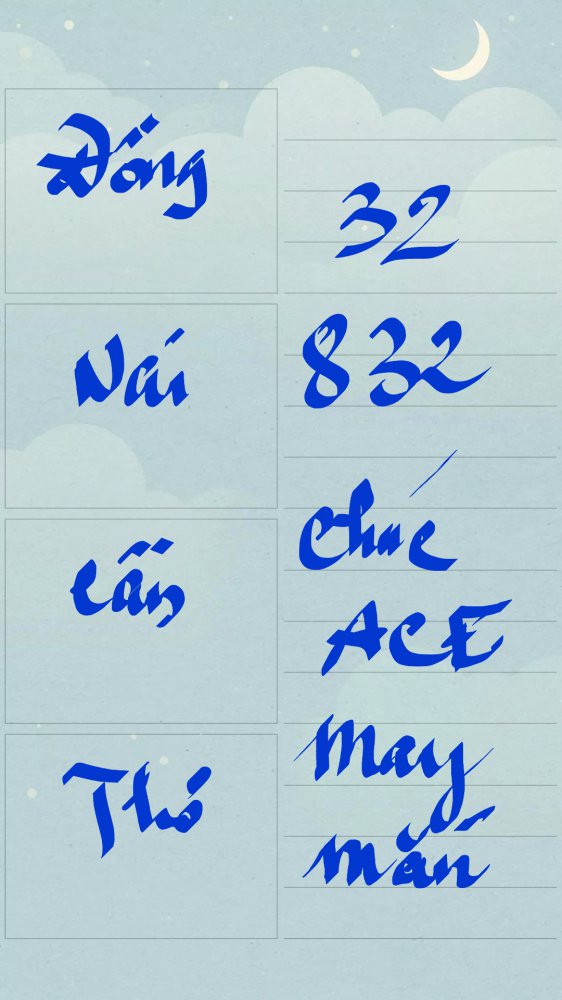 Đồng
Nai
Cần
Thơ
32
832
Chúc
ACE
May
mắn